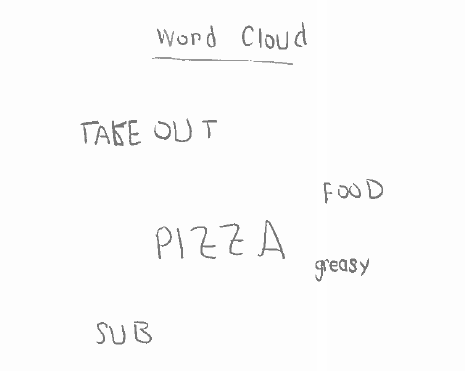 Word Cloud
TAKE OUT
FOOD
PIZZA
greasy
SUB